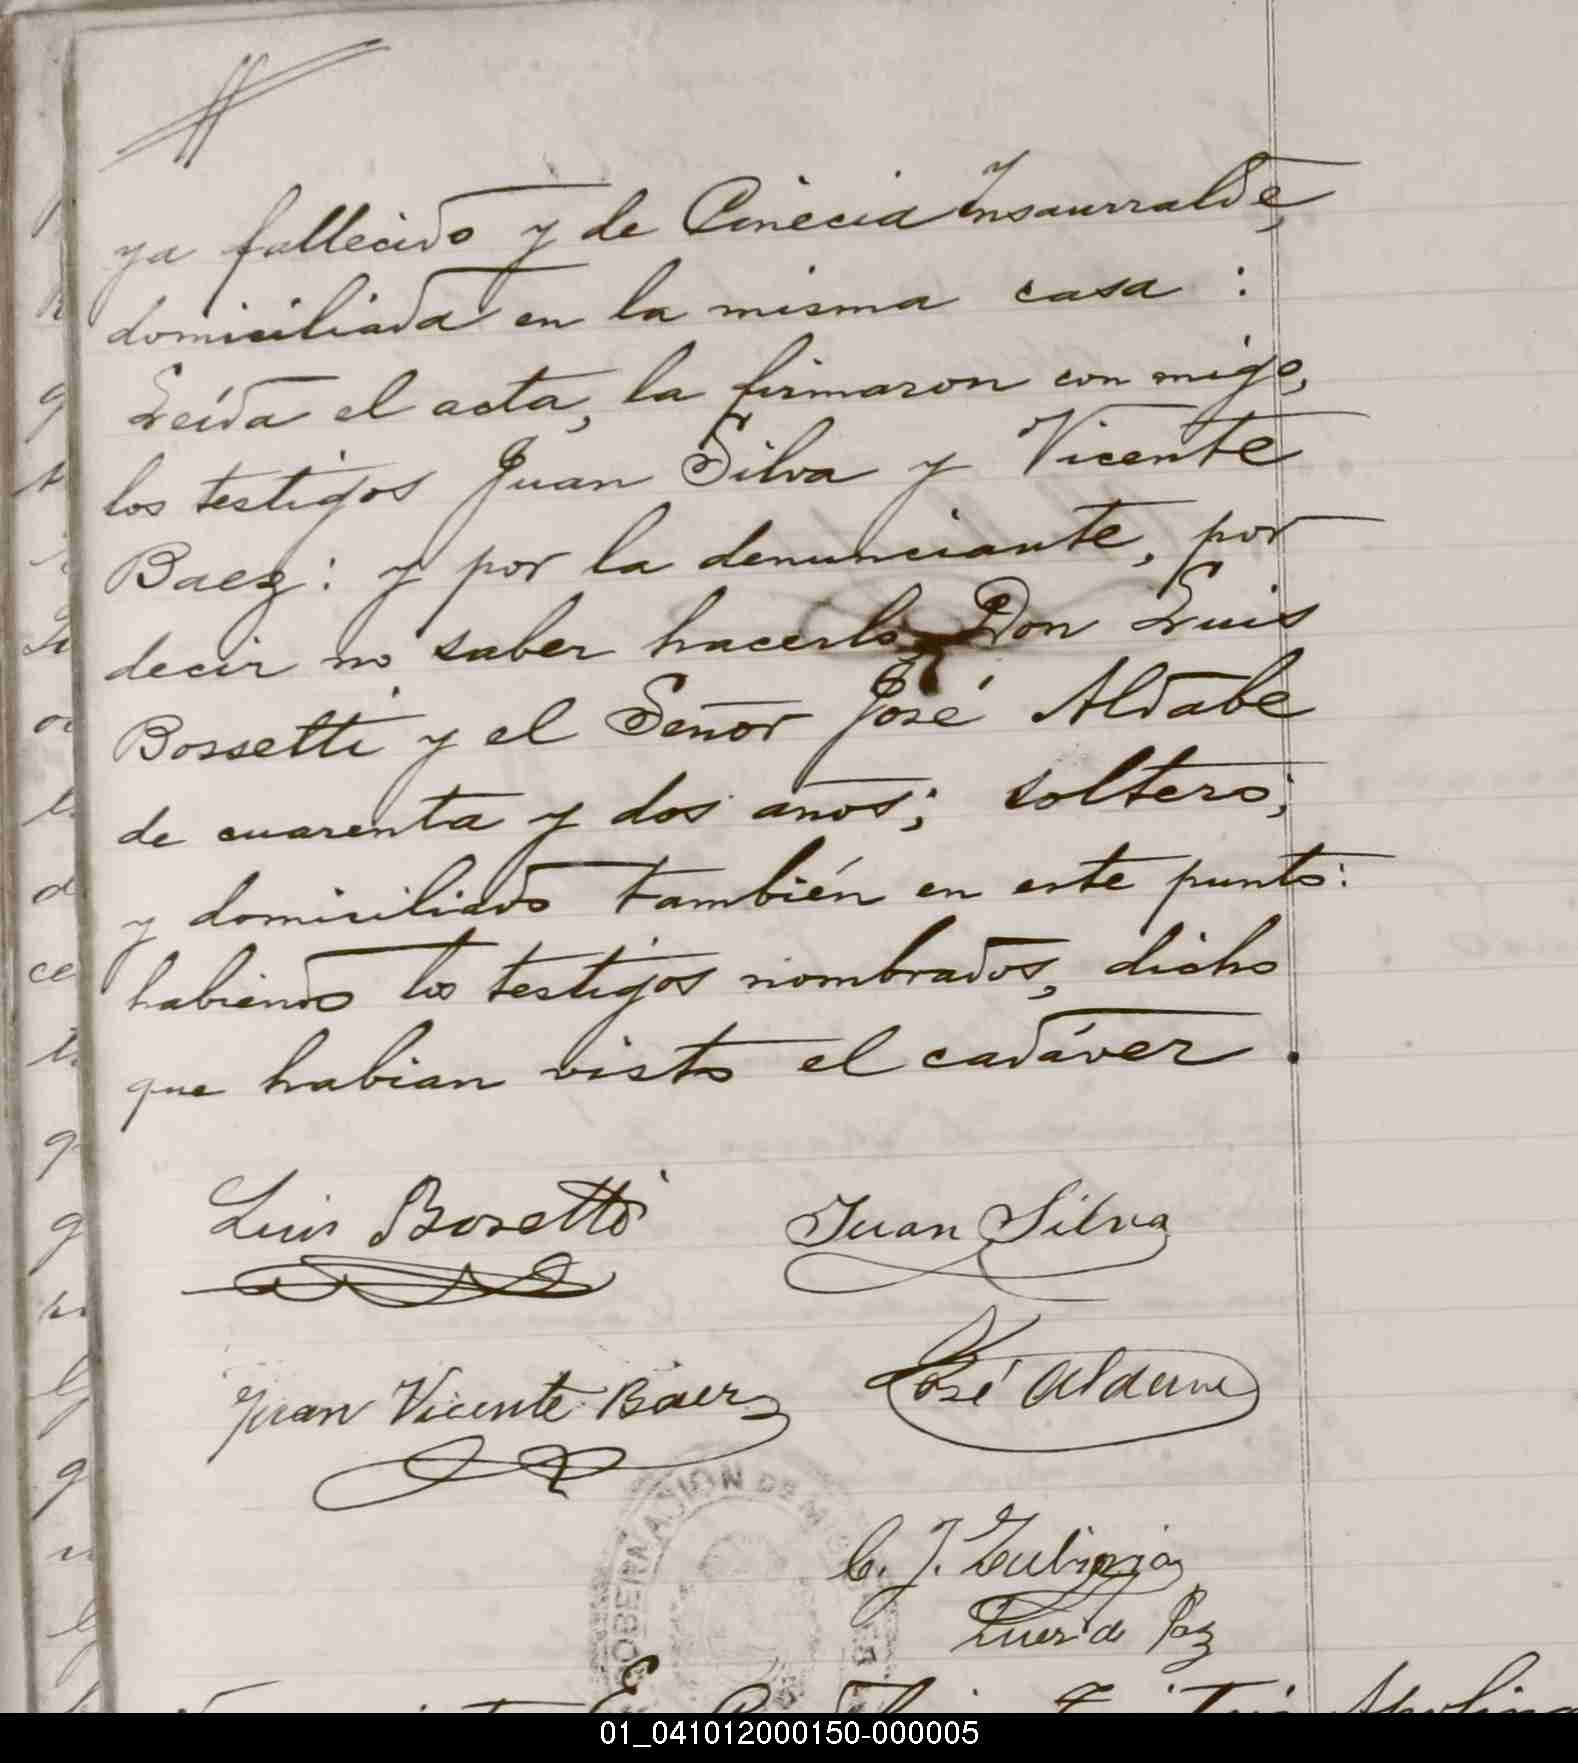 ya fallecido y de Cinecia Insaurralde,
domiciliada en la misma casa :
Leída el acta, la firmaron con migo,
los testigos Juan Silva y Vicente
Baez: y por la denunciante, por
decir no saber hacerlo, Don Luis
Bossetti y el Señor José Aldabe
de cuarenta y dos años; soltero;
y domiciliado también en este punto:
habiendo los testigos nombrados, dicho
que habian visto el cadáver.
Luis Bosetti Juan Silva
Juan Vicente Baez José
GOBERNACIÓN DE MISIONES
C. J.
Juez de Paz
01_041012000150-000005